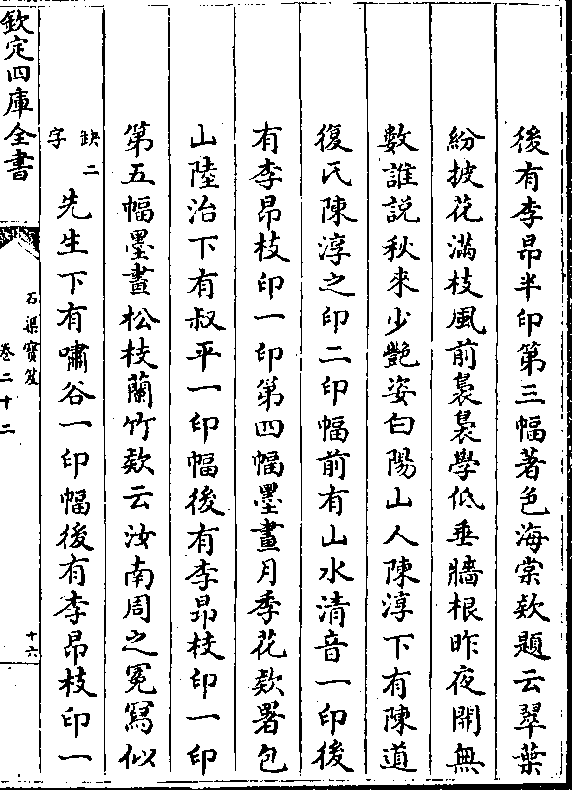 後有李昂半印第三幅著色海棠欵題云翠葉
紛披花滿枝風前裊裊學低垂牆根昨夜開無
數誰説秋來少艶姿白陽山人陳淳下有陳道
復氏陳淳之印二印幅前有山水清音一印後
有李昂枝印一印第四幅墨畫月季花欵署包
山陸治下有叔平一印幅後有李昂枝印一印
第五幅墨畫松枝蘭竹欵云汝南周之冕寫似
缺二字先生下有嘯谷一印幅後有李昂枝印一
欽定四庫全書
石渠寶笈
卷二十二
十六